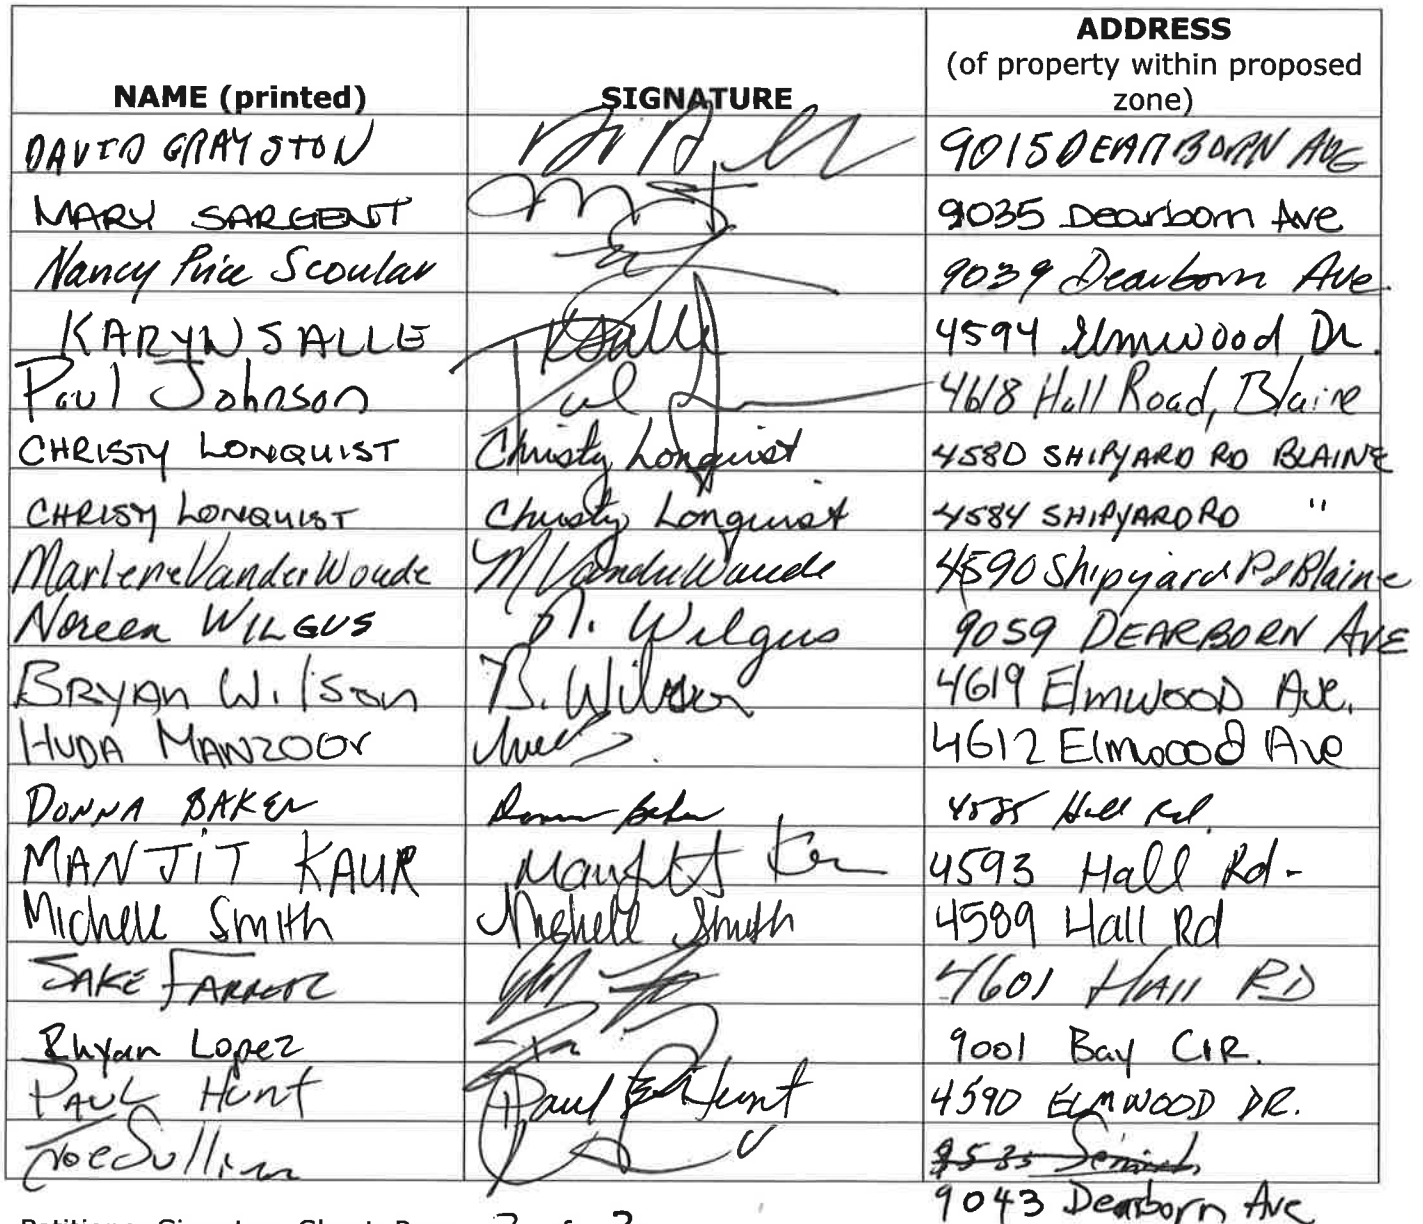 NAME (printed) SIGNATURE ADDRESS
(of property within proposed
zone)
DAVID GRAYSTON 9015 DEARBORN AVE
MARY SARGENT 9035 Dearborn Ave
Nancy Price Scoular 9039 Dearborn Ave
KARYN SALLE KSalle 4594 Elmwood Dr.
Paul Johnson 4618 Hall Road, Blaine
CHRISTY LONQUIST Christy Lonquist 4580 SHIPYARD RD BLAINE
CHRISTY LONQUIST Christy Lonquist 4584 SHIPYARD RD "
Marlene VanderWoude M VanderWoude 4590 Shipyard Rd Blaine
Noreen WILGUS N. Wilgus 9059 DEARBORN AVE
BRYAN Wilson B. Wilson 4619 ElmwOOD Ave.
HUDA MANZOOr 4612 Elmwood Ave
DONNA BAKER Donna Baker 4585 Hall Rd.
MANJIT KAUR Manjit Kaur 4593 Hall Rd-
Michell Smith Michell Smith 4589 Hall Rd
JAKE FARRER 4601 HAll RD
Rhyan Lopez 9001 Bay CIR.
PAUL Hunt Paul E Hunt 4590 ELMWOOD DR.
Joe Sullivan
9043 Dearborn Ave